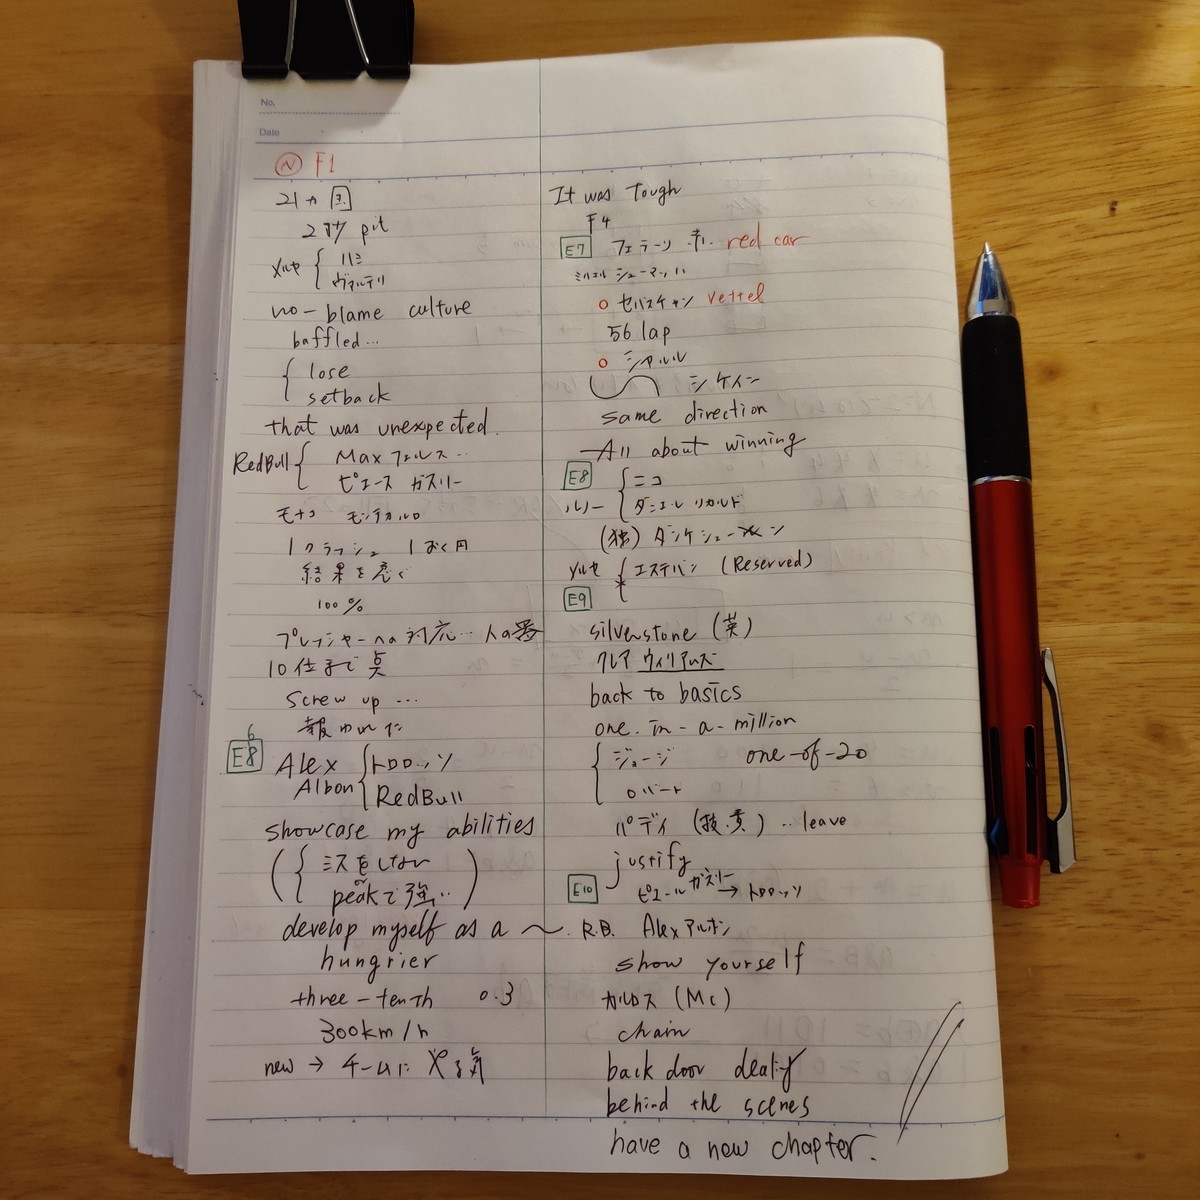 No.
Date
N F1
21ヶ国
2時 pit
メルセ ハミ
ヴァルテリ
no-blame culture
baffled...
lose
setback
that was unexpected.
RedBull Max フェルス...
ピエース ガスリー
モナコ モンテカルロ
1クラッシュ 1おく円
結果を
100%
プレッシャーへの対応...人の器
10位まで点
Screw up ...
報われた
6
E8
Alex トロロッソ
Albon RedBull
showcase my abilities
ミスをしない
or
peakで強い..
develop myself as a 〜.
hungrier
three-tenth 0.3
300km/h
new → チームに やる気
It was tough
F4
E7 フェラーリ 赤. red car
ミハエル シューマッハ
セバスチャン vettel
56 lap
シャルル
シケイン
same direction
All about winning
E8 ニコ
ルノー ダニエル リカルド
(独) ダンケシューン
メルセ エステバン (Reserved)
E9
silverstone (英)
クレア ウィリアムズ
back to basics
one-in-a-million
ジョージ one-of-20
ロバート
パディ (技.責) ..leave
justify
E10 ピエール ガスリー → トロロッソ
R.B. Alex アルボン
show yourself
カルロス (Mc)
chain
back door dealing
behind the scenes
have a new chapter.